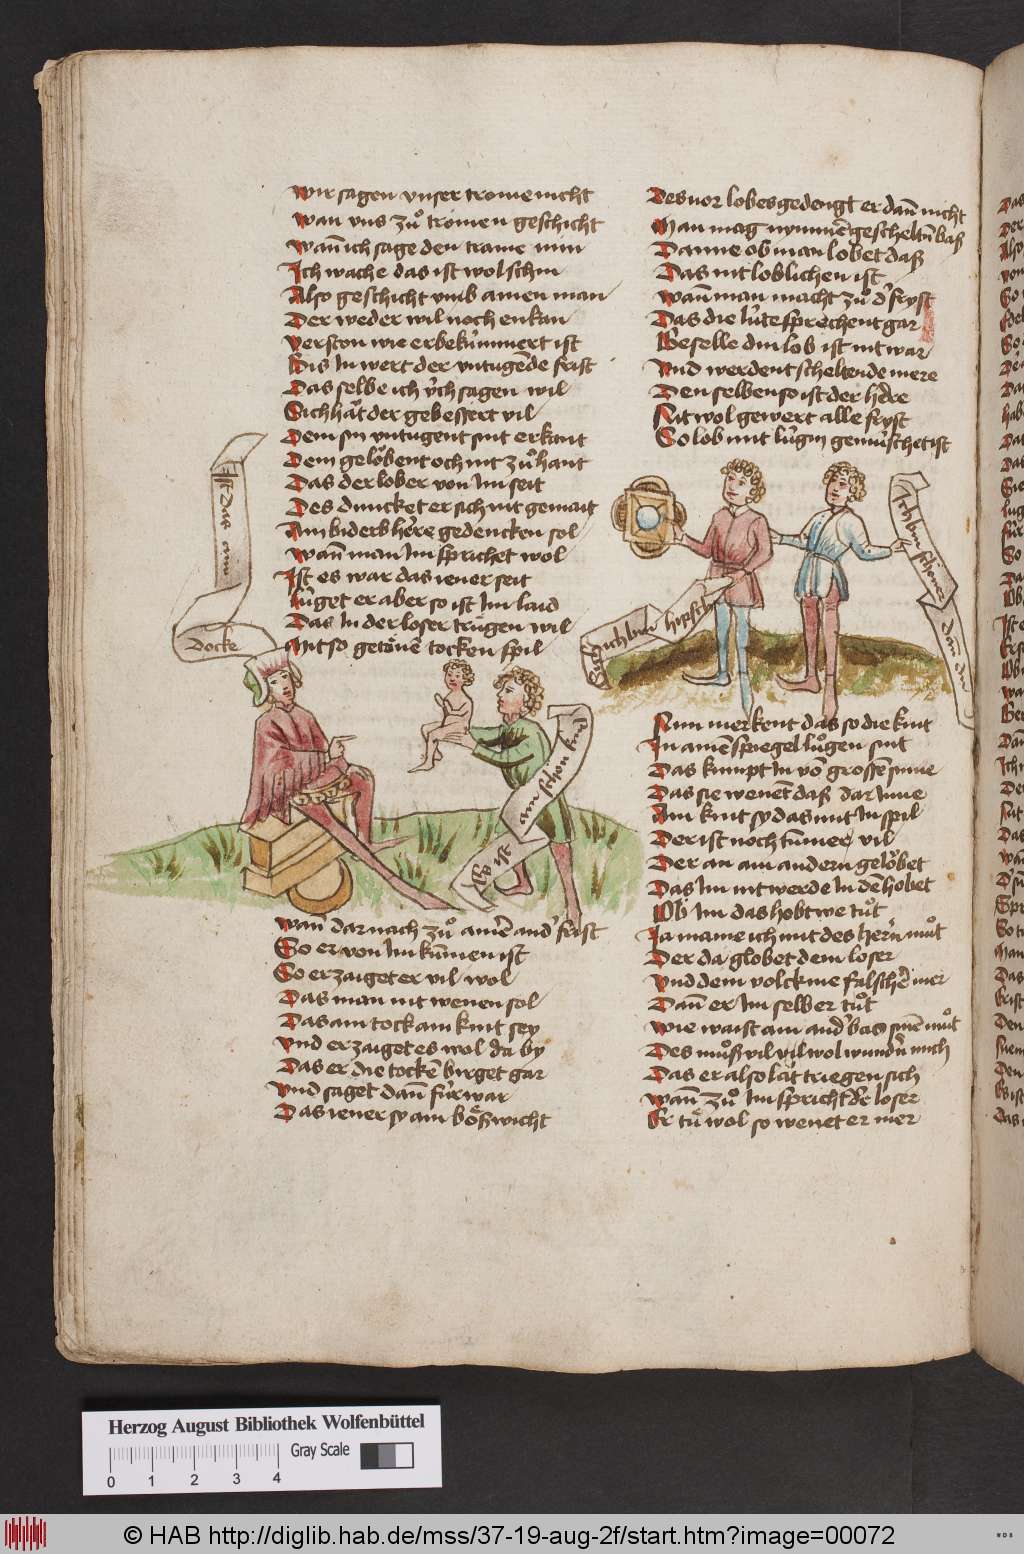 Wir sagen vnser trome nicht
Wan vns zuͦ tromen geschicht
Wan̄ ich sage den trame min
Ich wache das ist wol schin
Also geschicht vmb ainen man
Der weder wil noch enkan
Verston wie er bekümmert ist
Bis In wert der vntugēde frist
Das selbe ich v̈ch sagen wil
Sich hāt der gebessert vil
Dem sin vntugent sint erkant
Dem gelöbent och nit zuͦ hant
Das der lober von Im seit
Des duncket er sich nit gemait
Ain biderb herre gedencken sol
Wan̄ man Im sprichet wol
Ist es war das iener seit
Lüget er aber so ist Im laid
Das In der loser trugen wil
Mit so getönē tocken spil
Ist das ain
docke
ain schon kind
Wan̄ dar nach zuͦ ainē and' frist
So er von Im kumen ist
So erzaiget er vil wol
Das man nit wenen sol
Das ain tock ain kint sey
Vnd erzaiget es wol da by
Das er die tockē birget gar
Vnd saget dan̄ für war
Das iener sy ain bößwicht
Des vor lobes gedengt er dan̄ nicht
Man mag nymmē gescheltn̄ baß
Danne ob man lobet daß
Das nit loblichen ist
Wan̄ man macht zuͦ d' fryst
Das die lüte sprechent gar
Geselle din lob ist nit war
Vnd werdent scheltende mere
Den selben so ist der here
Nit wol gewert alle fryst
So lob mit lügin gemüschet ist
ich bin hüpsch
Ich bin schöner
dan̄ du
Nun merkent das so die kint
In ainē spiegel luͦgen sint
Das kumpt In vō grossē sinne
Das sie wenēt daß dar Inne
Ain kint sy das mit In spil
Der ist noch tum̄er vil
Der an ain andern gelöbet
Das Im nit werde In dē hobet
Ob Im das hobt we tuͦt
Ia maine ich mit des hern̄ muͦt
Der da globet dem loser
Vnd dem volck me falschē mer
Dan̄ er Im selber tuͦt
Wie waist ain and' bas sinē muͦt
Des muͦß vil vil wol wundn̄ mich
Das er also lät triegen sich
Wan̄ zuͦ Im spricht der loser
Er tuͤ wol so wenet er mer
Herzog August Bibliothek Wolfenbüttel
Gray Scale
0 1 2 3 4
© HAB http://diglib.hab.de/mss/37-19-aug-2f/start.htm?image=00072